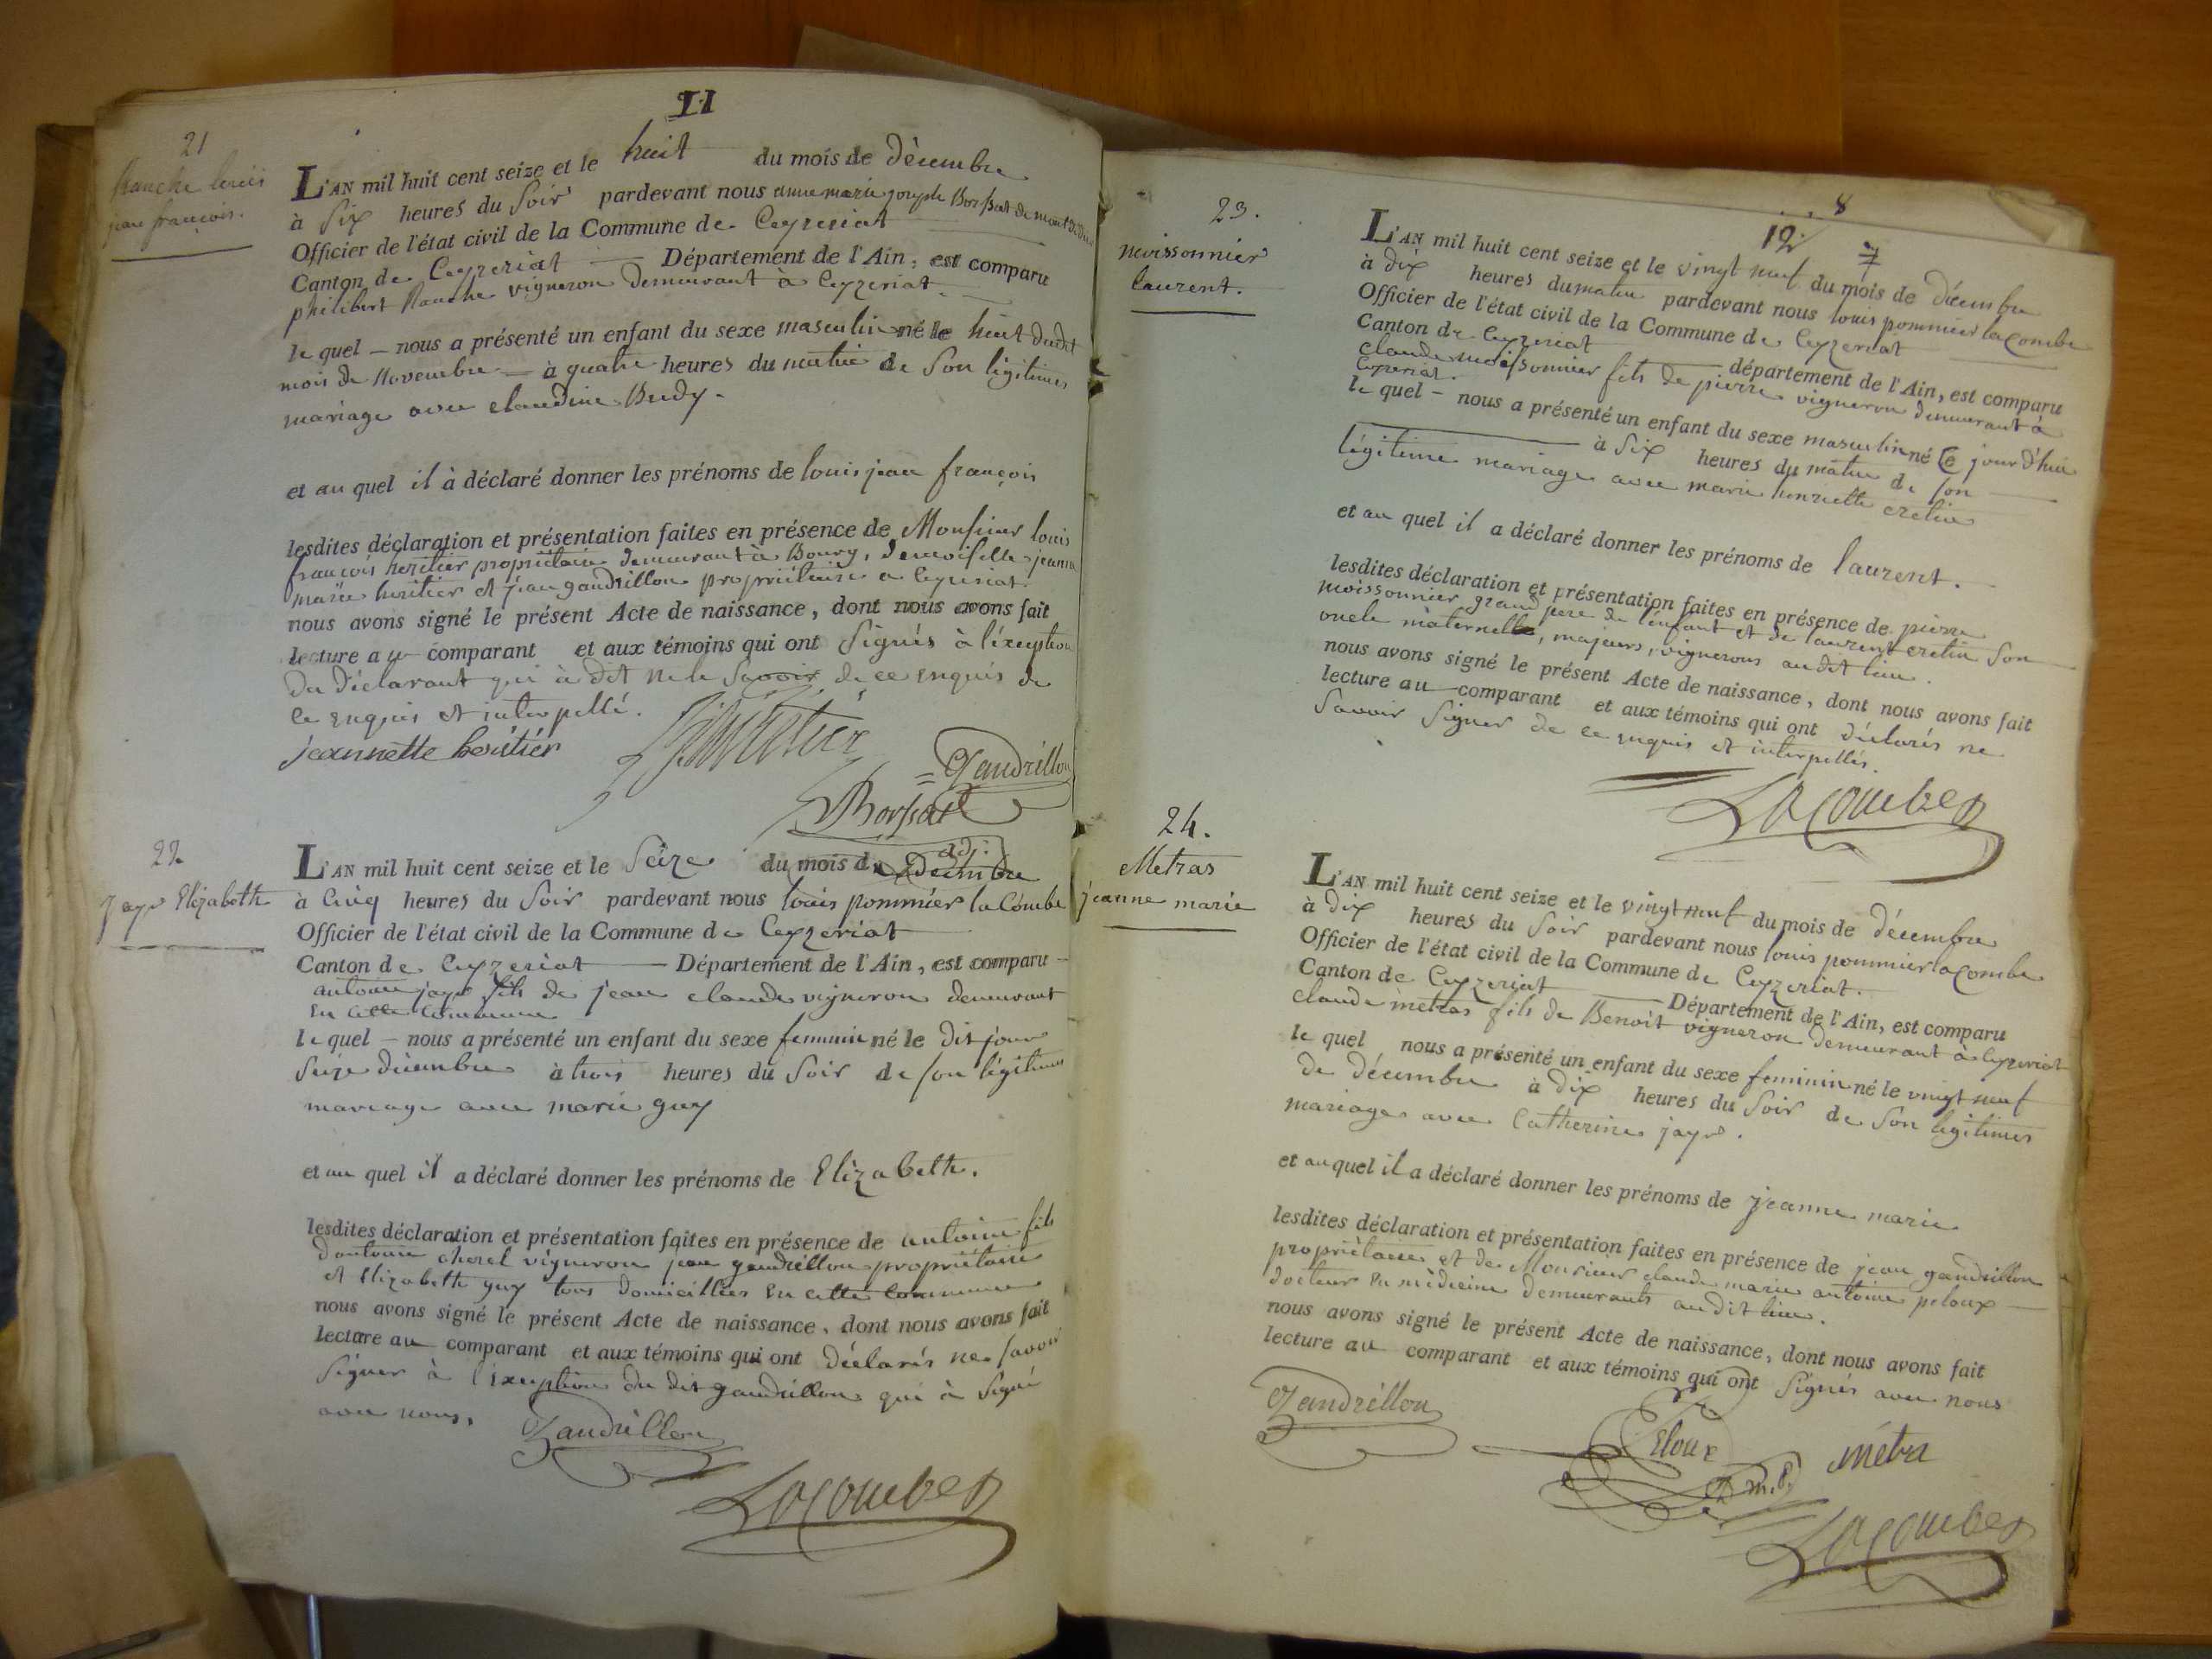 11
21
louis
jean françois.
L'AN mil huit cent seize et le huit du mois de décembre
à Six heures du Soir pardevant nous anne marie joseph Borssat de
Officier de l'état civil de la Commune de Ceyzeriat
Canton de Ceyzeriat Département de l'Ain, est comparu
philibert vigneron demeurant à Ceyzeriat.
le quel nous a présenté un enfant du sexe masculin né le huit dudit
mois de Novembre à quatre heures du matin de Son légitime
mariage avec claudine
et au quel il à déclaré donner les prénoms de louis jean françois
lesdites déclaration et présentation faites en présence de Monsieur louis
françois heritier propriétaire demeurant à Bourg, demoiselle jeanne
marie heritier et jean gandrillon propriétaire a Ceyzeriat
nous avons signé le présent Acte de naissance, dont nous avons fait
lecture au comparant et aux témoins qui ont Signés à l'éxception
du déclarant qui à dit ne le Savoir de ce enquis de
ce enquis et interpellé.
jeannette heritier
Gandrillon
Borssat
adj.
22
jayr Elizabeth
L'AN mil huit cent seize et le Seize du mois de Decembre
à Cinq heures du Soir pardevant nous louis pommier la Combe
Officier de l'état civil de la Commune de Ceyzeriat
Canton de Ceyzeriat Département de l'Ain, est comparu
antoine jayr fils de jean claude vigneron demeurant
En Cette Commune
le quel nous a présenté un enfant du sexe feminin né le dit jour
Seize décembre à trois heures du Soir de son légitime
mariage avec marie guy
et au quel il a déclaré donner les prénoms de Elizabeth.
lesdites déclaration et présentation faites en présence de antoine fils
d'antoine cherel vigneron jean gandrillon propriétaire
et Elizabeth guy tous domicilliés En cette commune
nous avons signé le présent Acte de naissance, dont nous avons fait
lecture au comparant et aux témoins qui ont déclarés ne savoir
Signer à l'éxception du dit gandrillon qui à Signé
avec nous,
Gandrillon
LaCombe
8
12
7
23.
moissonnier
laurent.
L'AN mil huit cent seize et le vingt neuf du mois de décembre
à dix heures du matin pardevant nous louis pommier lacombe
Officier de l'état civil de la Commune de Ceyzeriat
Canton de Ceyzeriat département de l'Ain, est comparu
claude moissonnier fils de pierre vigneron demeurant à
Ceyzeriat.
le quel nous a présenté un enfant du sexe masculin né Ce jour d'hui
à Six heures du matin de son
légitime mariage avec marie henriette cretin
et au quel il a déclaré donner les prénoms de laurent.
lesdites déclaration et présentation faites en présence de pierre
moissonnier grand pere de l'enfant et de laurent cretin Son
oncle maternel, majeurs, vignerons audit lieu.
nous avons signé le présent Acte de naissance, dont nous avons fait
lecture au comparant et aux témoins qui ont déclarés ne
Savoir Signer de ce enquis et interpellés.
LaCombe
24.
Metras
jeanne marie
L'AN mil huit cent seize et le vingt neuf du mois de décembre
à dix heures du Soir pardevant nous louis pommier lacombe
Officier de l'état civil de la Commune de Ceyzeriat.
Canton de Ceyzeriat Département de l'Ain, est comparu
claude metras fils de Benoit vigneron demeurant à Ceyzeriat
le quel nous a présenté un enfant du sexe feminin né le vingt neuf
de décembre à dix heures du Soir de Son légitime
mariage avec Catherine jayr.
et au quel il a déclaré donner les prénoms de jeanne marie
lesdites déclaration et présentation faites en présence de jean gandrillon
propriètaire et de Monsieur claude marie antoine peloux
docteur En médecine demeurants audit lieu.
nous avons signé le présent Acte de naissance, dont nous avons fait
lecture au comparant et aux témoins qui ont Signés avec nous
Gandrillon
Peloux
D.m.P.
métra
LaCombe